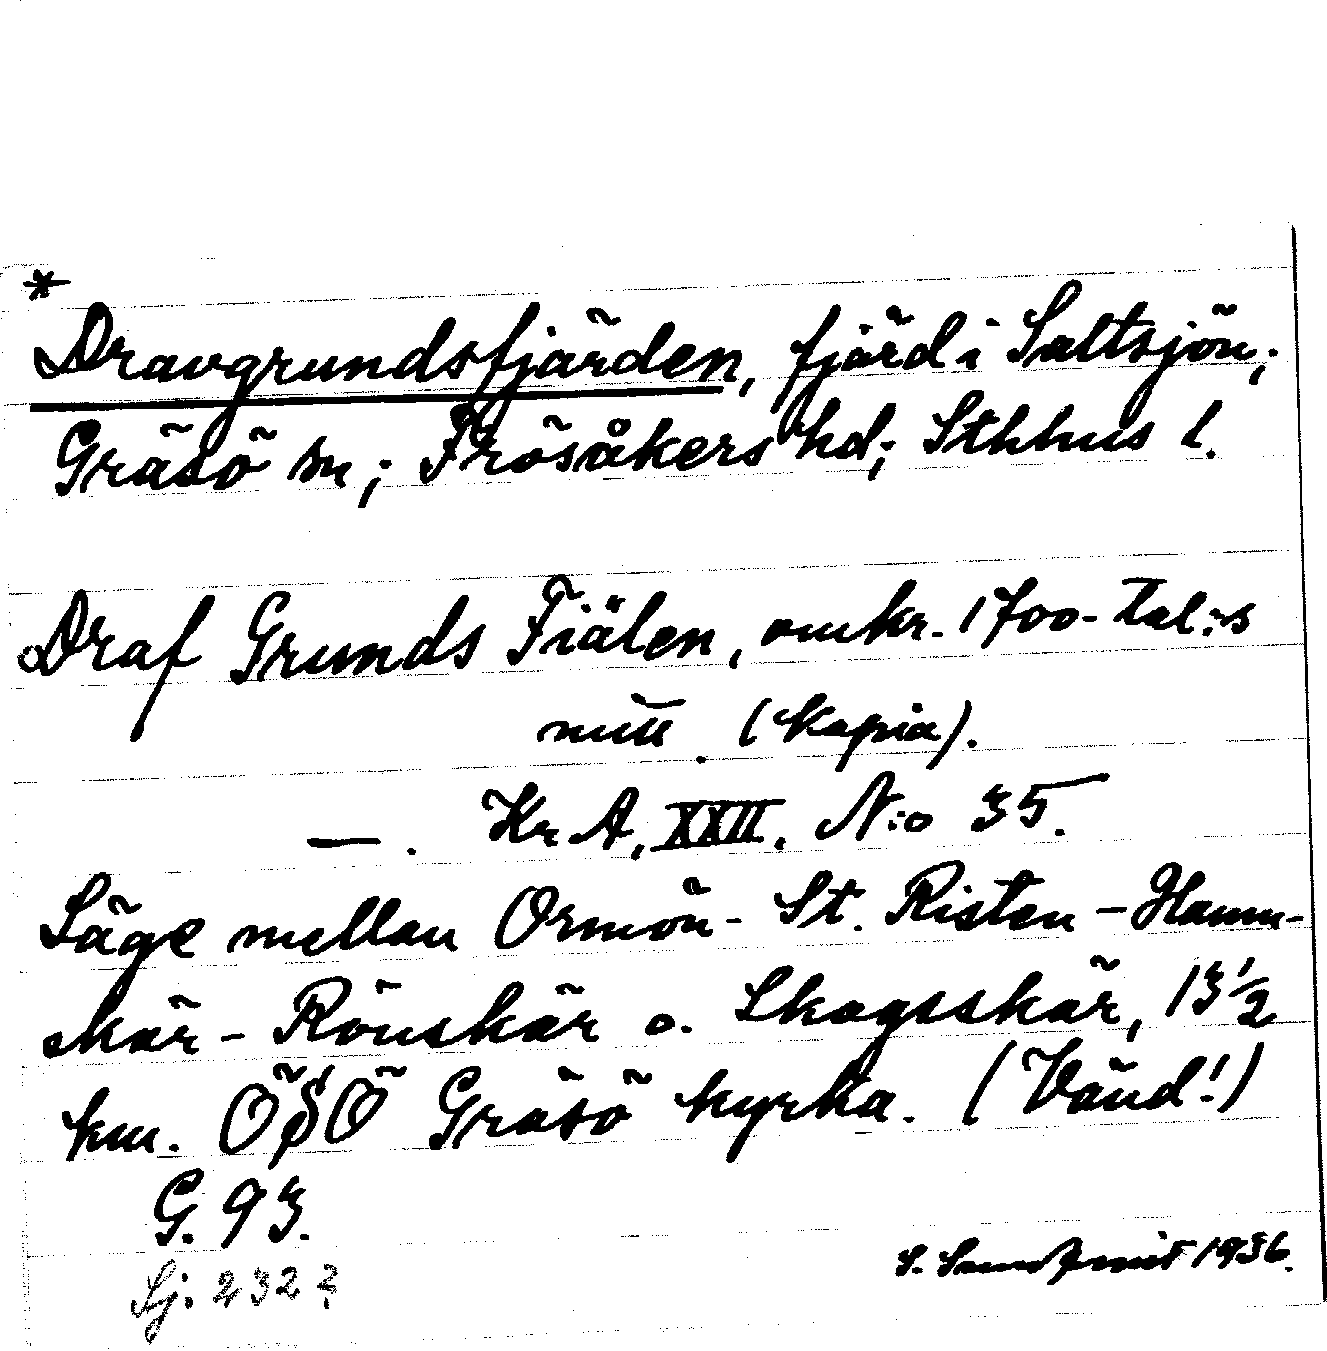 *
Dravgrundsfjärden, fjärd i Saltsjön;
Gräsö sn; Frösåkers hd; Sthlms l.
Draf Grunds Fiälen, omkr. 1700-tal:s
mitt (kopia).
— . Kr A, XXII, N:o 35.
Läge mellan Ormön - St. Risten - Hamn-
skär - Rönskär o. Skogsskär, 13 1/2
km. ÖSÖ Gräsö kyrka. (Vänd!)
G. 93.
Sj. 232?
S. 1936.